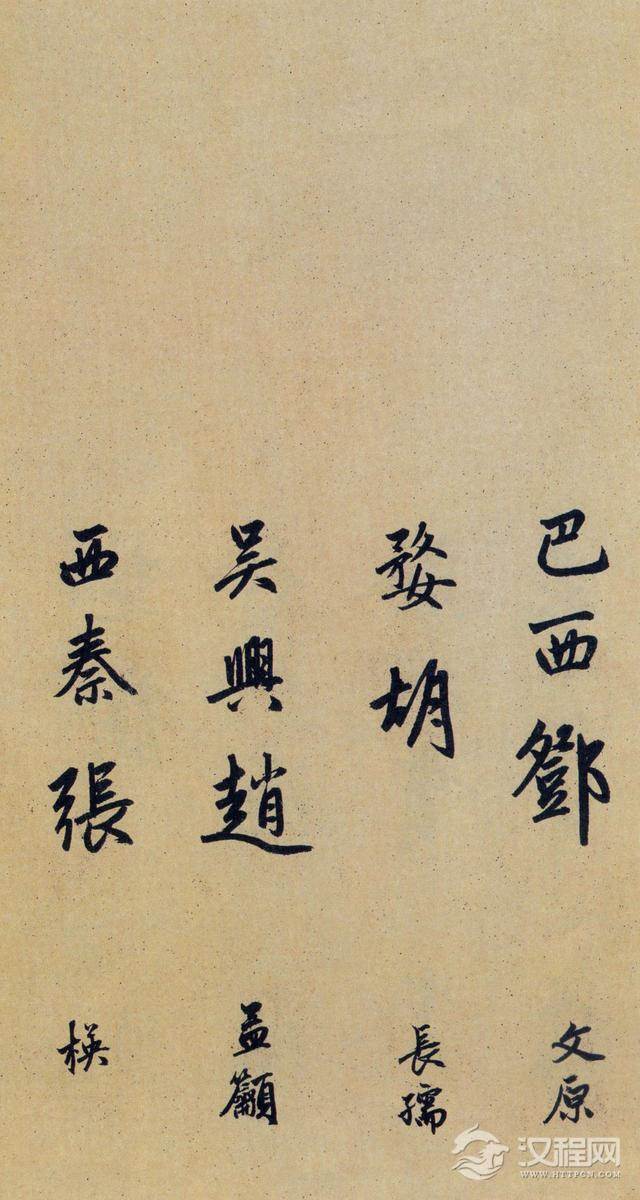 巴西鄧文原
婺胡長孺
吴興趙孟籲
西秦張楧
汉程网
WWW.HTTPCN.COM